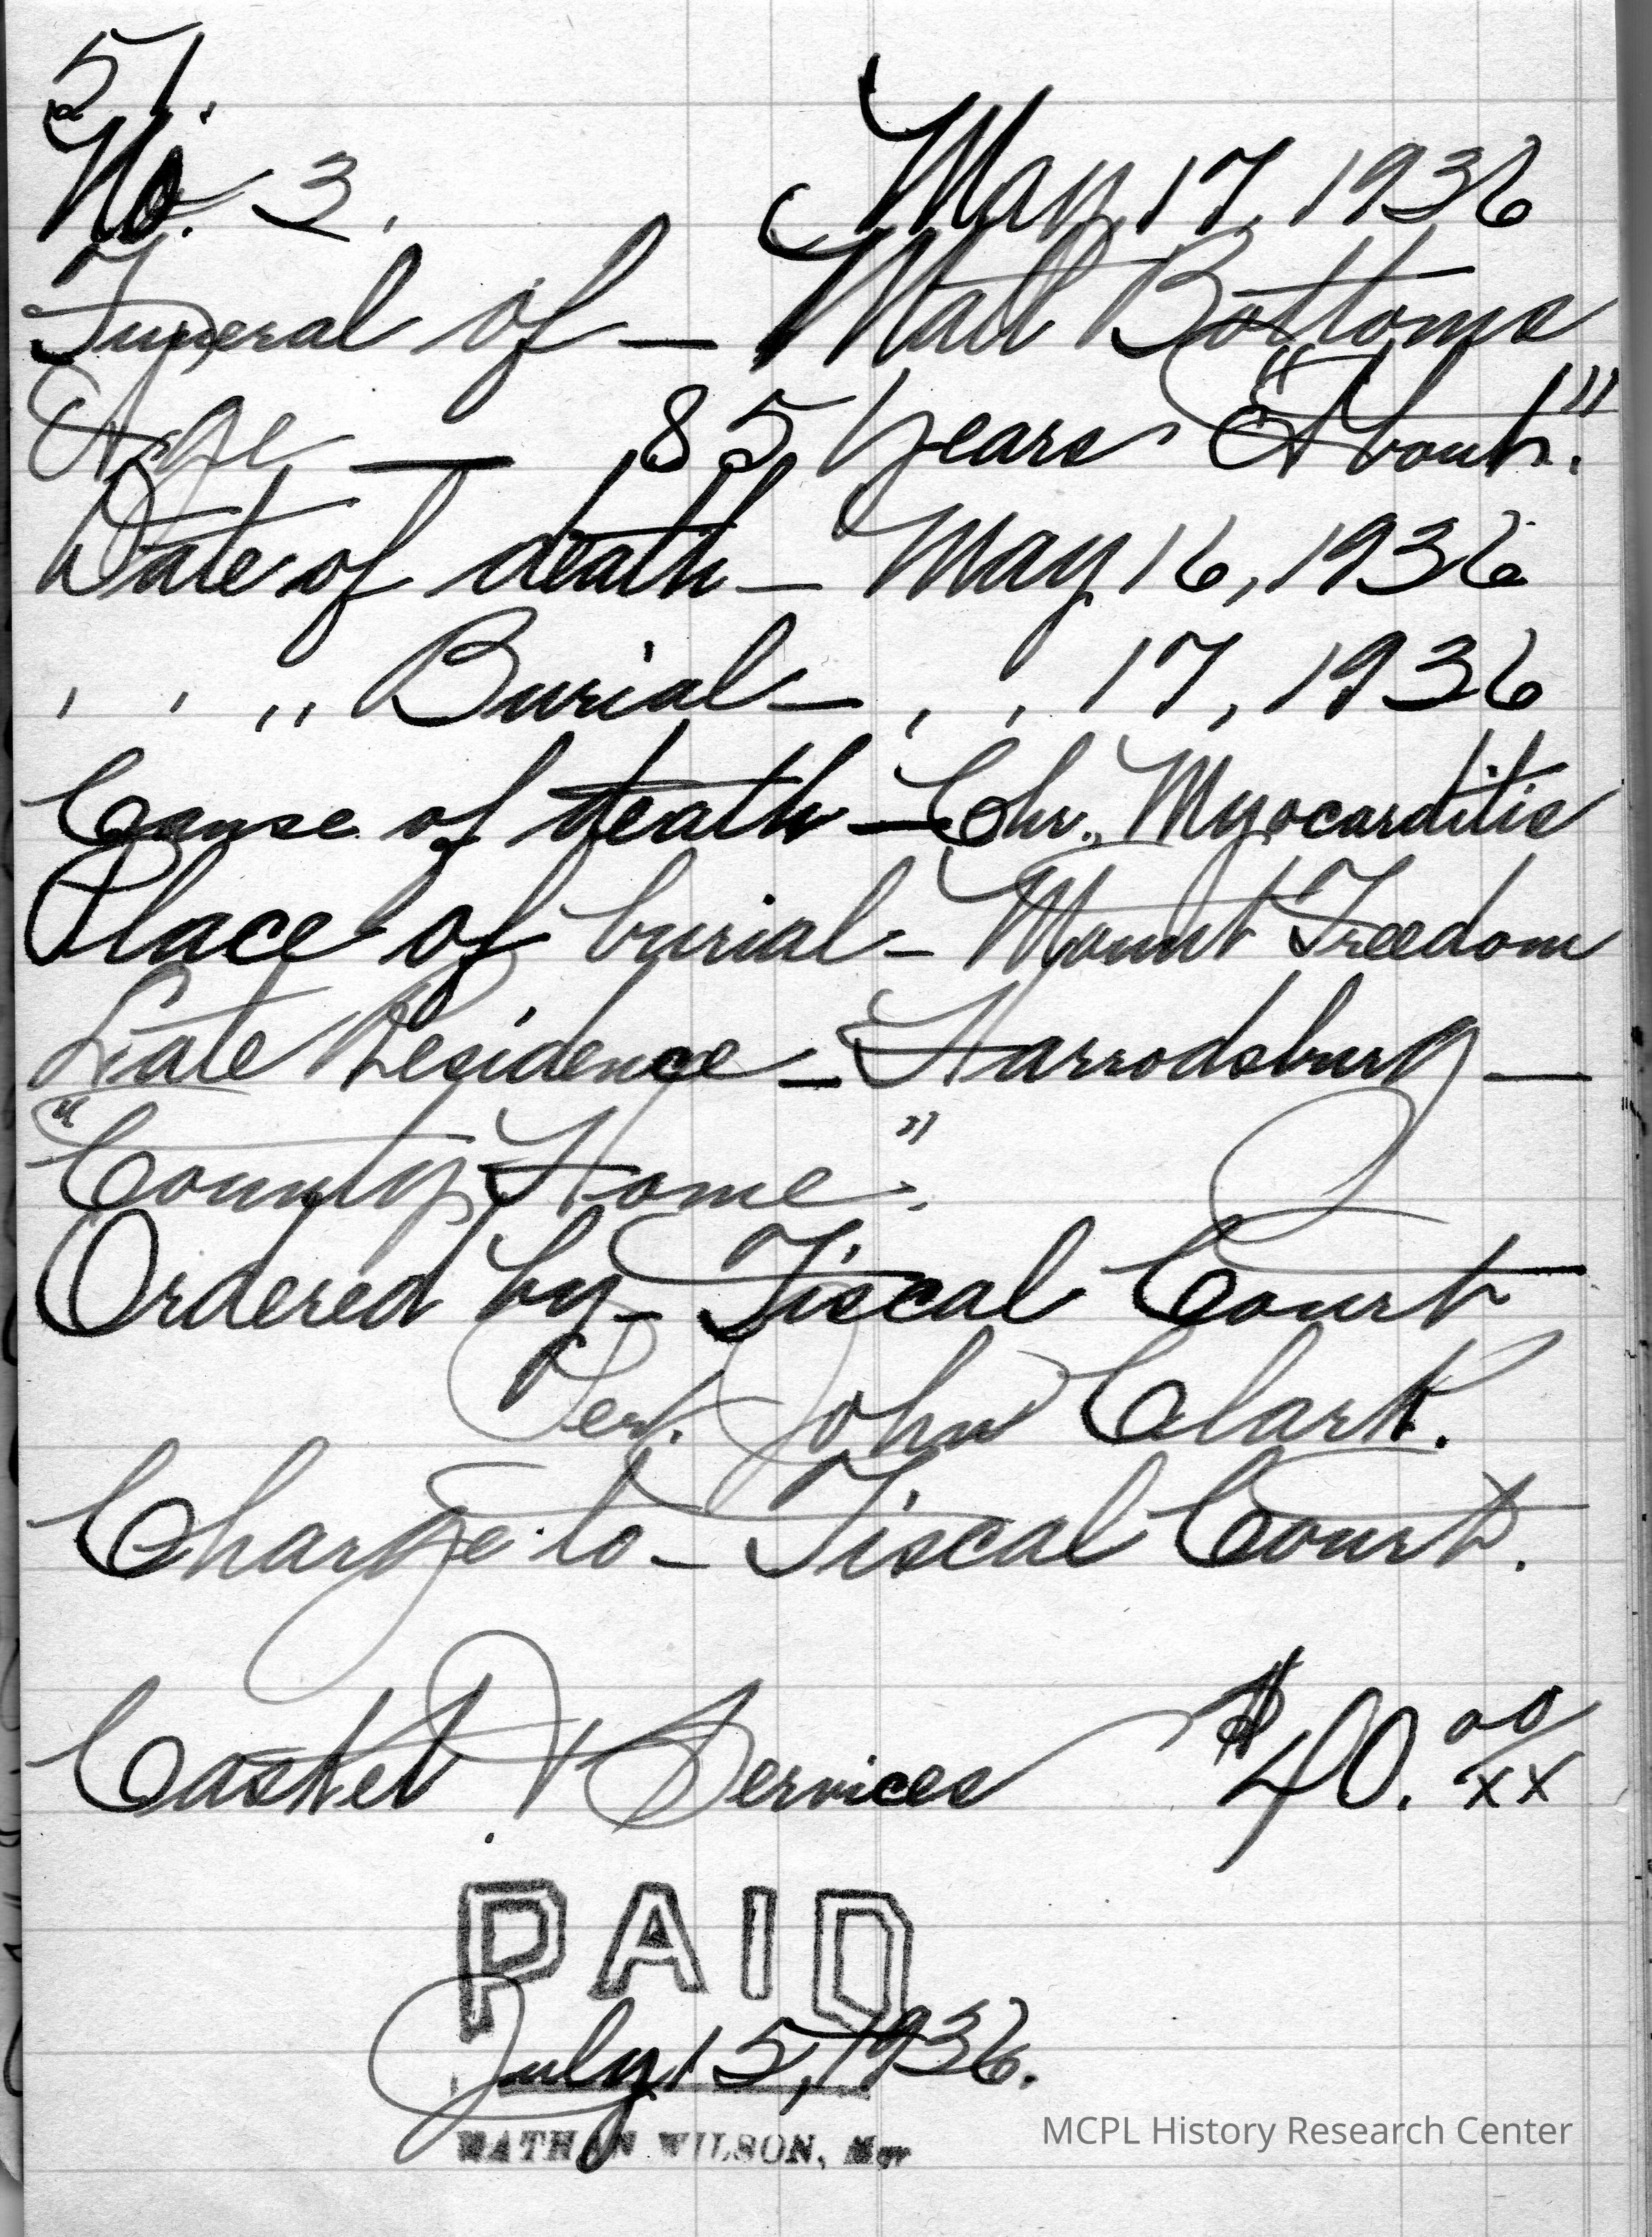 51.
No. 3. May 17, 1936
Funeral of — Matt Bottoms
Age — 85 Years "About".
Date of death — May 16, 1936
, , ,, Burial — , , 17, 1936
Cause of death — Chr. Myocarditis
Place of burial — Mount Freedom
Late Residence — Harrodsburg —
"County Home".
Ordered by — Fiscal Court
Per. John Clark.
Charge to — Fiscal Court.
Casket & Services $40.00/xx
PAID
July 15, 1936.
NATHAN WILSON, Mgr
MCPL History Research Center